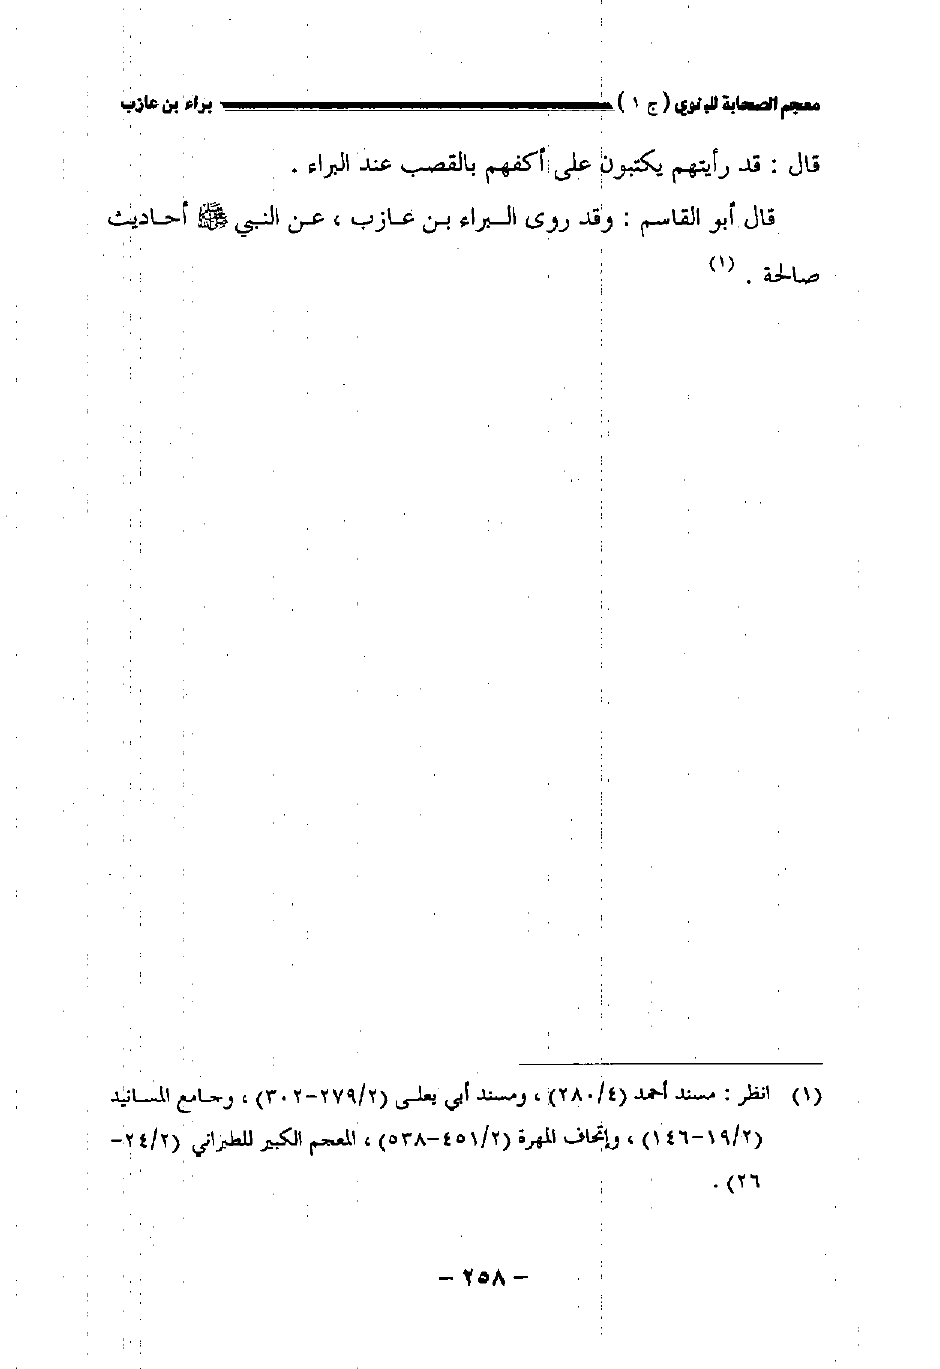 معجم الصحابة للبغوي (ج ١) براء بن عازب
قال : قد رأيتهم يكتبون على أكفهم بالقصب عند البراء .
قال أبو القاسم : وقد روى البراء بن عازب ، عن النبي ﷺ أحاديث
صالحة . (١)
(١) انظر : مسند أحمد (٢٨٠/٤) ، ومسند أبي يعلى (٢٧٩/٢-٣٠٢) ، وجامع المسانيد
(١٩/٢-١٤٦) ، وإتحاف المهرة (٤٥١/٢-٥٣٨) ، المعجم الكبير للطبراني (٢٤/٢-
٢٦) .
- ٢٥٨ -